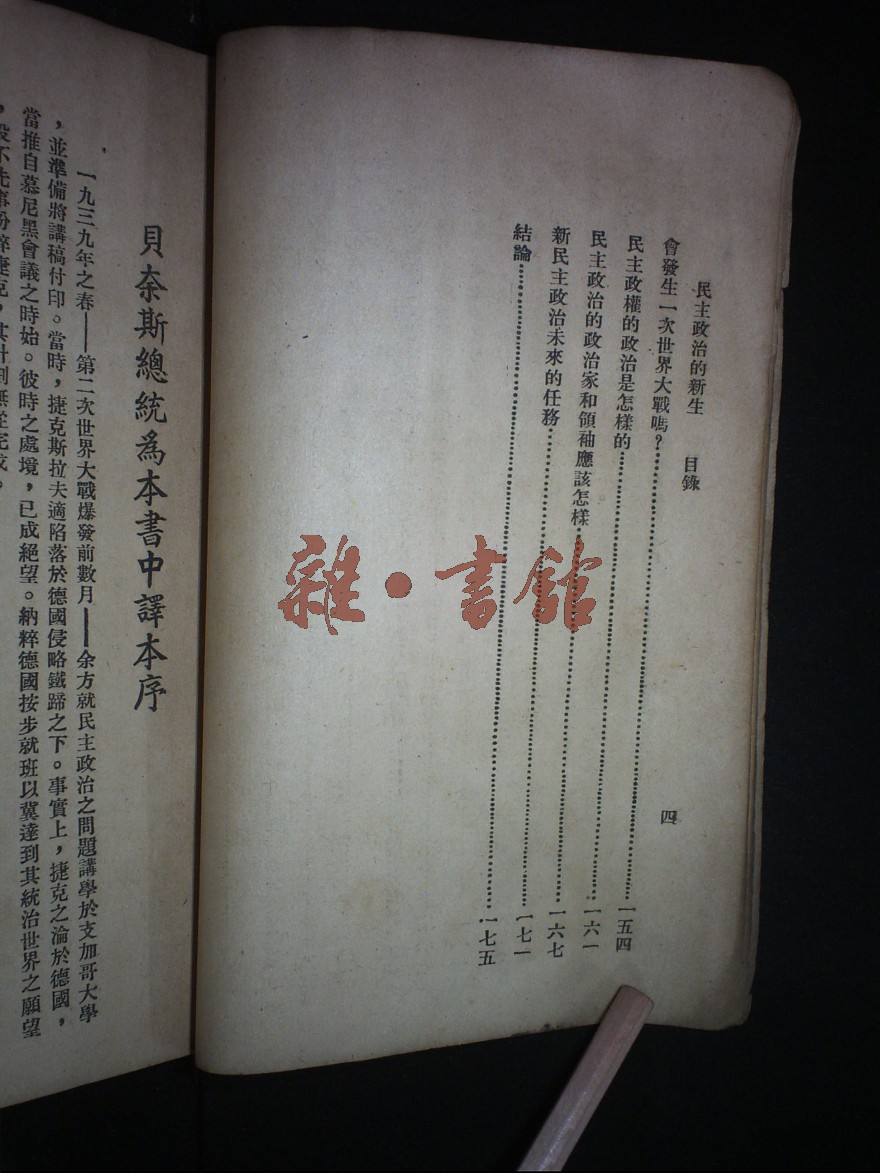 民主政治的新生 目錄 四
會發生一次世界大戰嗎？⋯⋯一五四
民主政權的政治是怎樣的⋯⋯一六一
民主政治的政治家和領袖應該怎樣⋯⋯一六七
新民主政治未來的任務⋯⋯一七一
結論⋯⋯一七五
雜·書館
貝奈斯總統為本書中譯本序
一九三九年之春——第二次世界大戰爆發前數月——余方就民主政治之問題講學於支加哥大學
，並準備將講稿付印。當時，捷克斯拉夫適陷落於德國侵略鐵蹄之下。事實上，捷克之淪於德國，
當推自慕尼黑會議之時始。彼時之處境，已成絕望。納粹德國按步就班以冀達到其統治世界之願望